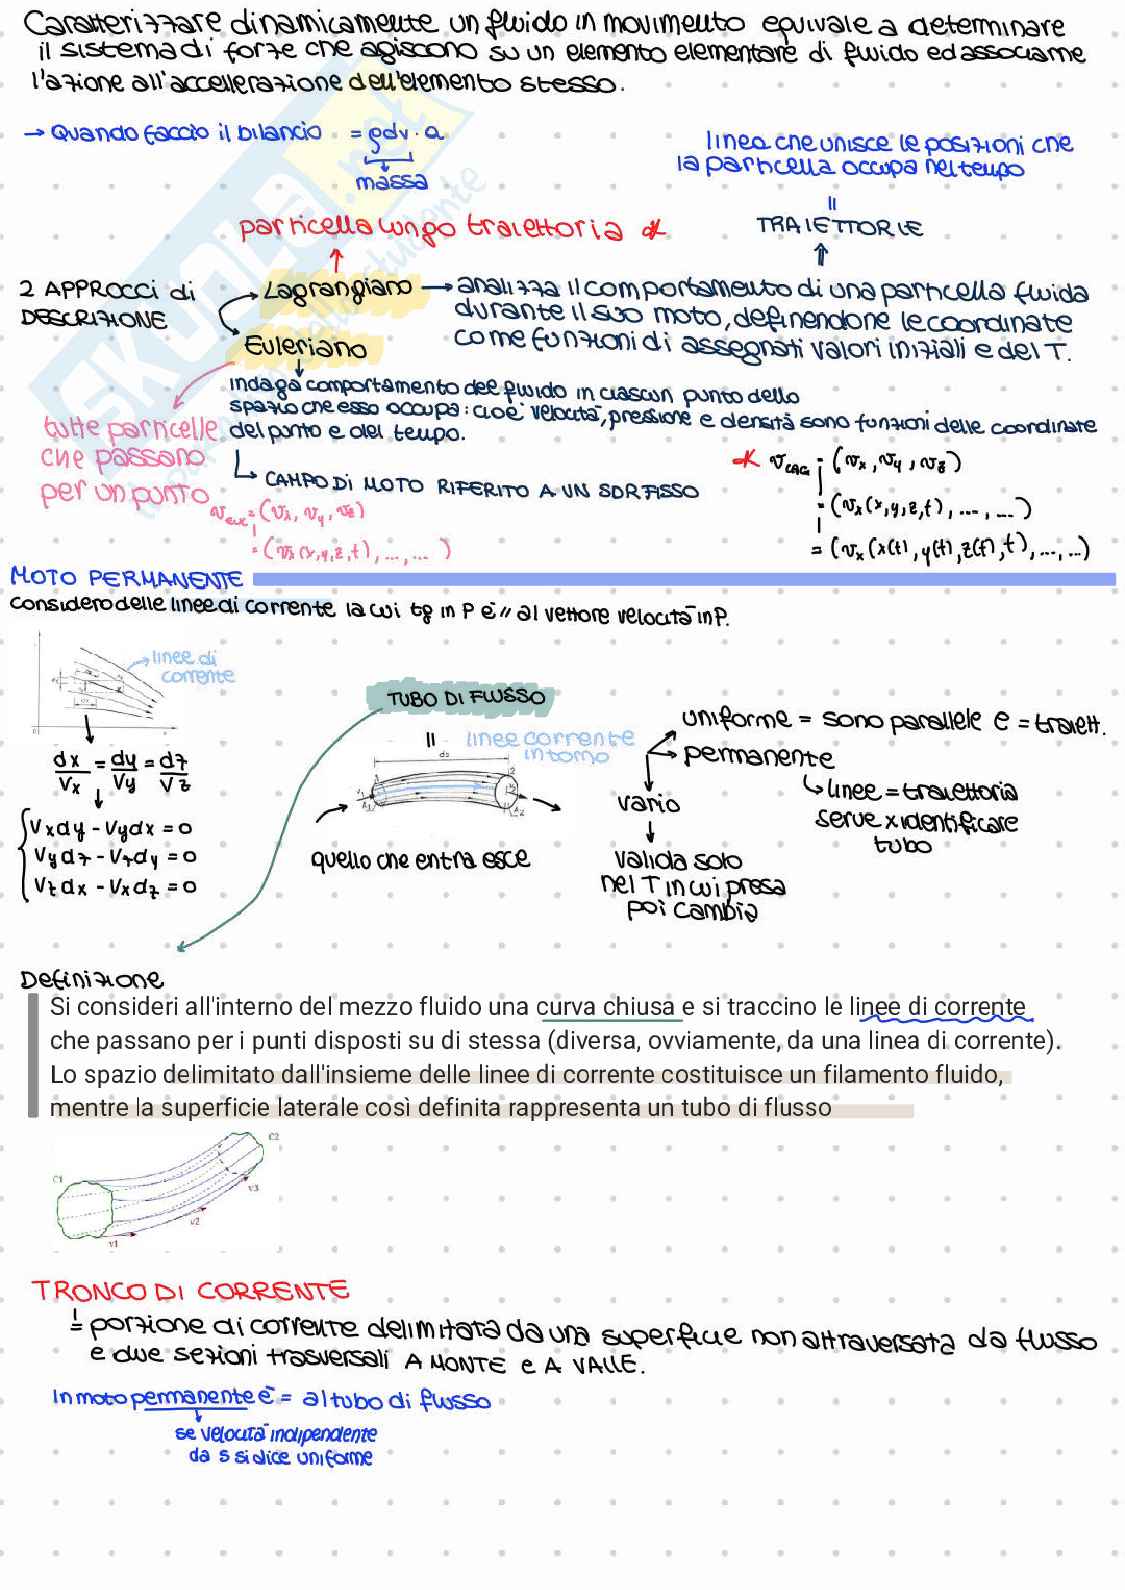 Caratterizzare dinamicamente un fluido in movimento equivale a determinare
il sistema di forze che agiscono su un elemento elementare di fluido ed associarne
l'azione all'accellerazione dell'elemento stesso.
→ Quando faccio il bilancio = ρdv · a
massa
linea che unisce le posizioni che
la particella occupa nel tempo
=
TRAIETTORIE
particella lungo traiettoria *
2 APPROCCI di
DESCRIZIONE
Lagrangiano → analizza il comportamento di una particella fluida
durante il suo moto, definendone le coordinate
come funzioni di assegnati valori iniziali e del T.
Euleriano
indaga comportamento del fluido in ciascun punto dello
spazio che esso occupa: cioè velocità, pressione e densità sono funzioni delle coordinate
del punto e del tempo.
tutte particelle
che passano
per un punto
↳ CAMPO DI MOTO RIFERITO A UN SDR FISSO
v eul = (vx, vy, vz)
= (vx(x,y,z,t), ..., ...)
* v LAG = (vx, vy, vz)
= (vx(x,y,z,t), ..., ...)
= (vx(x(t), y(t), z(t), t), ..., ...)
MOTO PERMANENTE
Considero delle linee di corrente la cui tg in P è // al vettore velocità in P.
linee di
corrente
dx/Vx = dy/Vy = dz/Vz
Vxdy - Vydx = 0
Vydz - Vzdy = 0
Vzdx - Vxdz = 0
TUBO DI FLUSSO
= linee corrente
intorno
ds
1
2
A1
A2
quello che entra esce
uniforme = sono parallele e = traiett.
permanente
↳ linee = traiettoria
serve x identificare
tubo
vario
valida solo
nel T in cui presa
poi cambia
Definizione
Si consideri all'interno del mezzo fluido una curva chiusa e si traccino le linee di corrente
che passano per i punti disposti su di stessa (diversa, ovviamente, da una linea di corrente).
Lo spazio delimitato dall'insieme delle linee di corrente costituisce un filamento fluido,
mentre la superficie laterale così definita rappresenta un tubo di flusso
C1
C2
v1
v2
v3
TRONCO DI CORRENTE
= porzione di corrente delimitata da una superficie non attraversata da flusso
e due sezioni trasversali A MONTE e A VALLE.
In moto permanente è = al tubo di flusso
se velocità indipendente
da s si dice uniforme